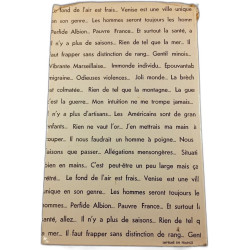 e fond de l'air est frais.. Venise est une ville unique
en son genre.. Les hommes seront toujours les homm
Perfide Albion.. Pauvre France.. Et surtout la s
Il n'y a plus de saisons.. Rien de tel que la mer.. Il
aut frapper sans distinction de rang.. Gentil minois..
Vibrante Marseillaise.. Immonde individu.. Epouvantab
migraine.. Odieuses violences.. Joli monde.. La brèch
est colmatée.. Rien de tel que la montagne.. C'est la
e la guerre.. Mon intuition ne me trompe jamais...
Il n'y a plus d'artisans.. Les Américains sont de gran
enfants.. Rien ne vaut l'or.. J'en mettrais ma main à
ouper.. Il nous faudrait un homme à poigne.. Nous
aisons que passer.. Allégations mensongères.. Situati
bien en mains.. C'est peut-être un peu large mais ça
rétré.. Le fond de l'air est frais.. Venise est une vill
unique en son genre.. Les hommes seront toujours le
hommes.. Perfide Albion.. Pauvre France.. Et surtout l
anté, allez.. Il n'y a plus de saisons.. Rien de tel q
a mer.. Il faut frapper sans distinction de rang.. Gent
IMPRIMÉ EN FRANCE